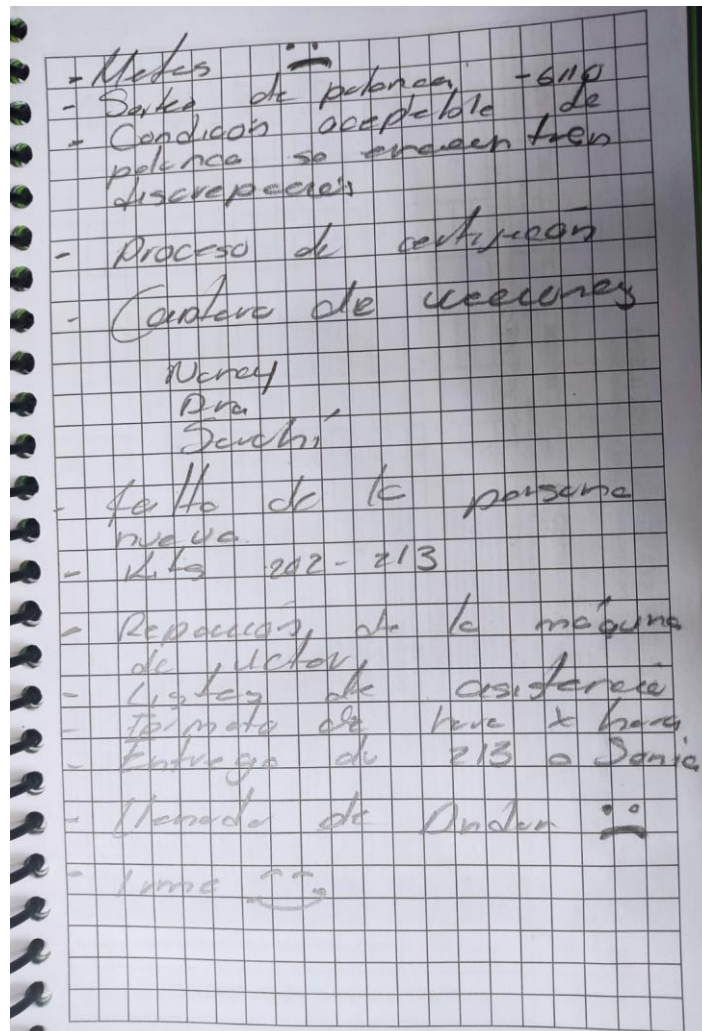 - Metas
- Sorteo de palanca
- Condición aceptable de
palanca se encuentren
discrepacias
- Proceso de
- de vacaciones
Nancy
Ana
Sarahí
- falta de la persona
nueva
- Kits 202 - 213
- Reparación de la máquina
de Victor
- Listas de asistencia
- Formato de hora x hora
- Entrega de 213 a Sonia
- Llenado de Andon
- Irme